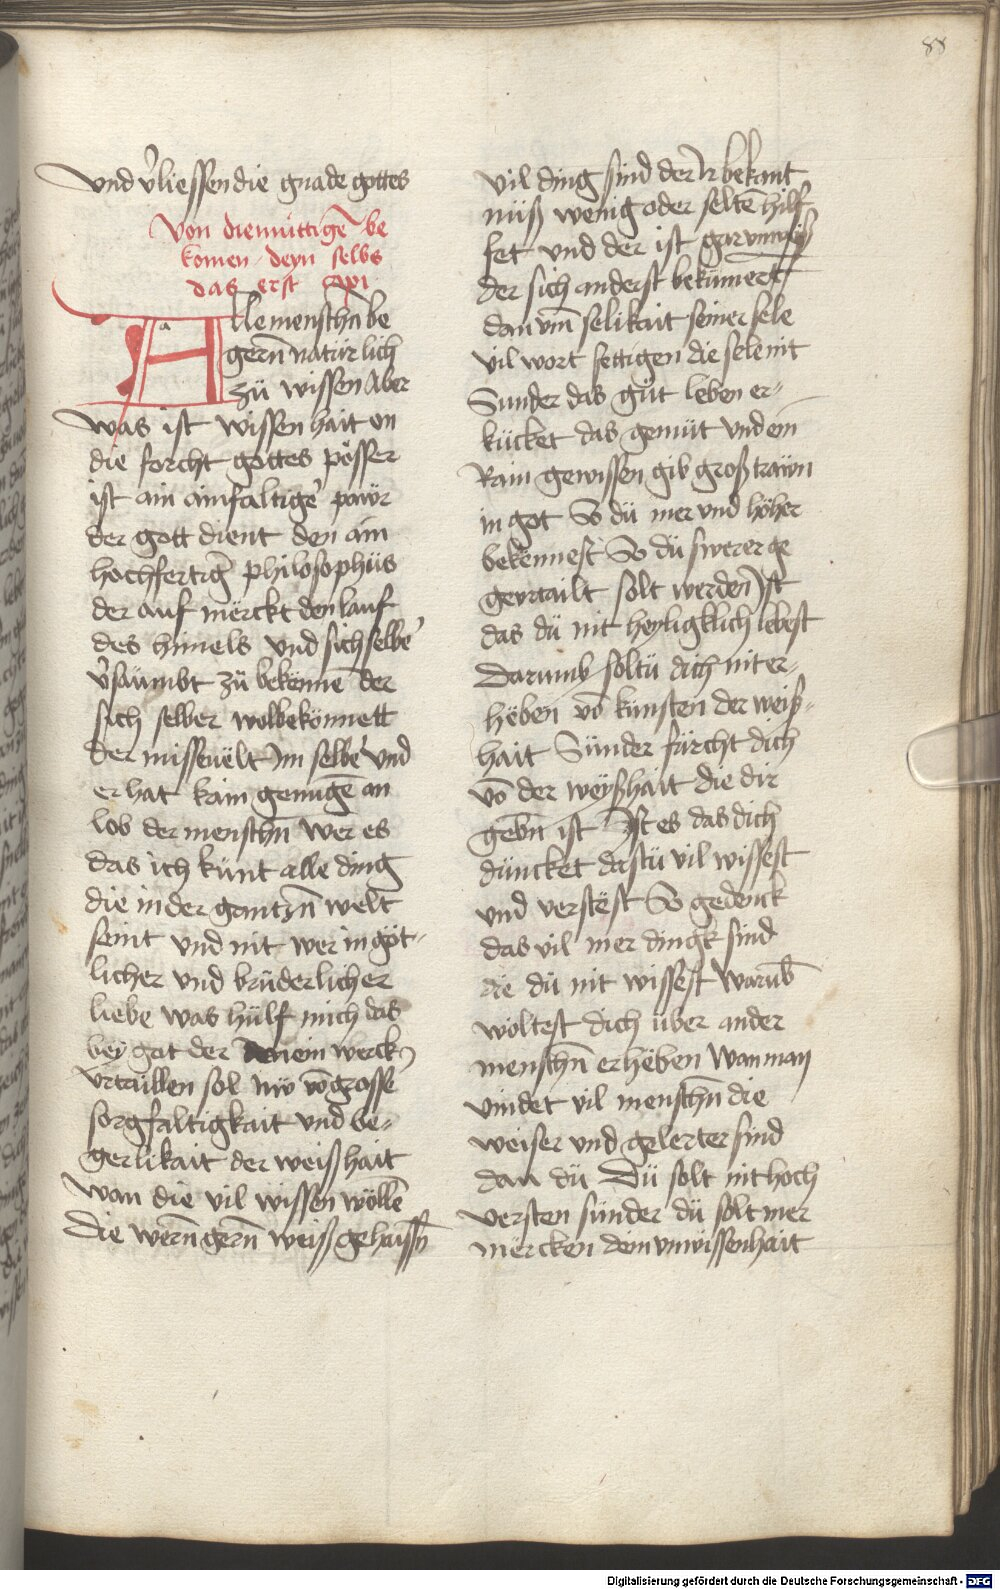 88
vnd v̓liessen die gnade gottes
Von diemüttigē be
komen deyn selbs
das erst capi
Alle menschn̄ be
gern̄ natürlich
zü wissen Aber
was ist wissenhait on
die forcht gottes pösser
ist ain ainfaltiger pawr
der gott dient den ain
hochfertiger philosophüs
der auf mërckt den lauf
des himels vnd sich selber
v̓säumbt zü bekennē der
sich selber wolbekönnett
der misseuëlt Im selber vnd
er hat kain genügē an
lob der menschn̄ Wer es
das ich künt alle ding
die in der gantzn̄ welt
seint vnd nit wer in göt-
licher vnd brüderlicher
liebe was hülf mich das
bey got der mein werck
vrtaillen sol Rw vō grosser
sorgfaltigkait vnd be-
gerlikait der weißhait
wan die vil wissen wöllē
die wern̄ gern̄ weiß gehaissn̄
vil ding sind der Ir bekant
nüß wenig oder seltē hilf
fet vnd der ist gar vnweiß
der sich anderst bekümert
dan vm̄ selikait seiner sele
vil wort settigen die sele nit
Sunder das güt leben er-
kücket das gemüt vnd ein
Rain gewissen gib groß trawn
in got So dü mer vnd höher
bekennest So dü swerer ge
geurtailt solt werden Ist
das dü nit heyligklich lebest
Darumb soltü dich nit er-
hëben vō künsten der weiß-
hait Sünder fürcht dich
vō der weyßhait die dir
gebn̄ ist Ist es das dich
düncket dastü vil wissest
vnd verstëst So gedenck
das vil mer dingk sind
die dü nit wissest Warūb
woltest dich über ander
menschn̄ erhëben Wan man
vindet vil menschn̄ die
weiser vnd gelerter sind
dan dü Dü solt nit hoch
versten sünder dü solt mer
mërcken dein vnwissenhait
Digitalisierung gefördert durch die Deutsche Forschungsgemeinschaft - DFG